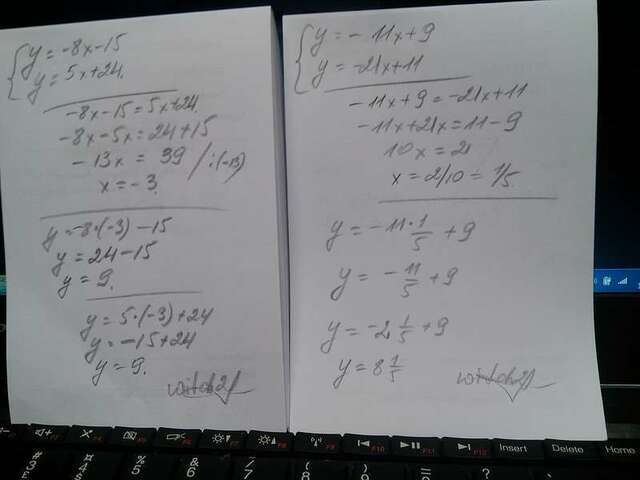 y = -8x-15
y = 5x+24.
-8x-15 = 5x+24.
-8x-5x = 24+15
-13x = 39 /:(-13)
x = -3.
y = -8·(-3) -15
y = 24-15
y = 9.
y = 5·(-3)+24
y = -15+24
y = 9.
y = -11x+9
y = -21x+11
-11x+9 = -21x+11
-11x+21x = 11-9
10x = 2
x = 2/10 = 1/5.
y = -11·1/5 +9
y = -11/5 +9
y = -2 1/5 +9
y = 8 1/5
Insert
Delete
Home